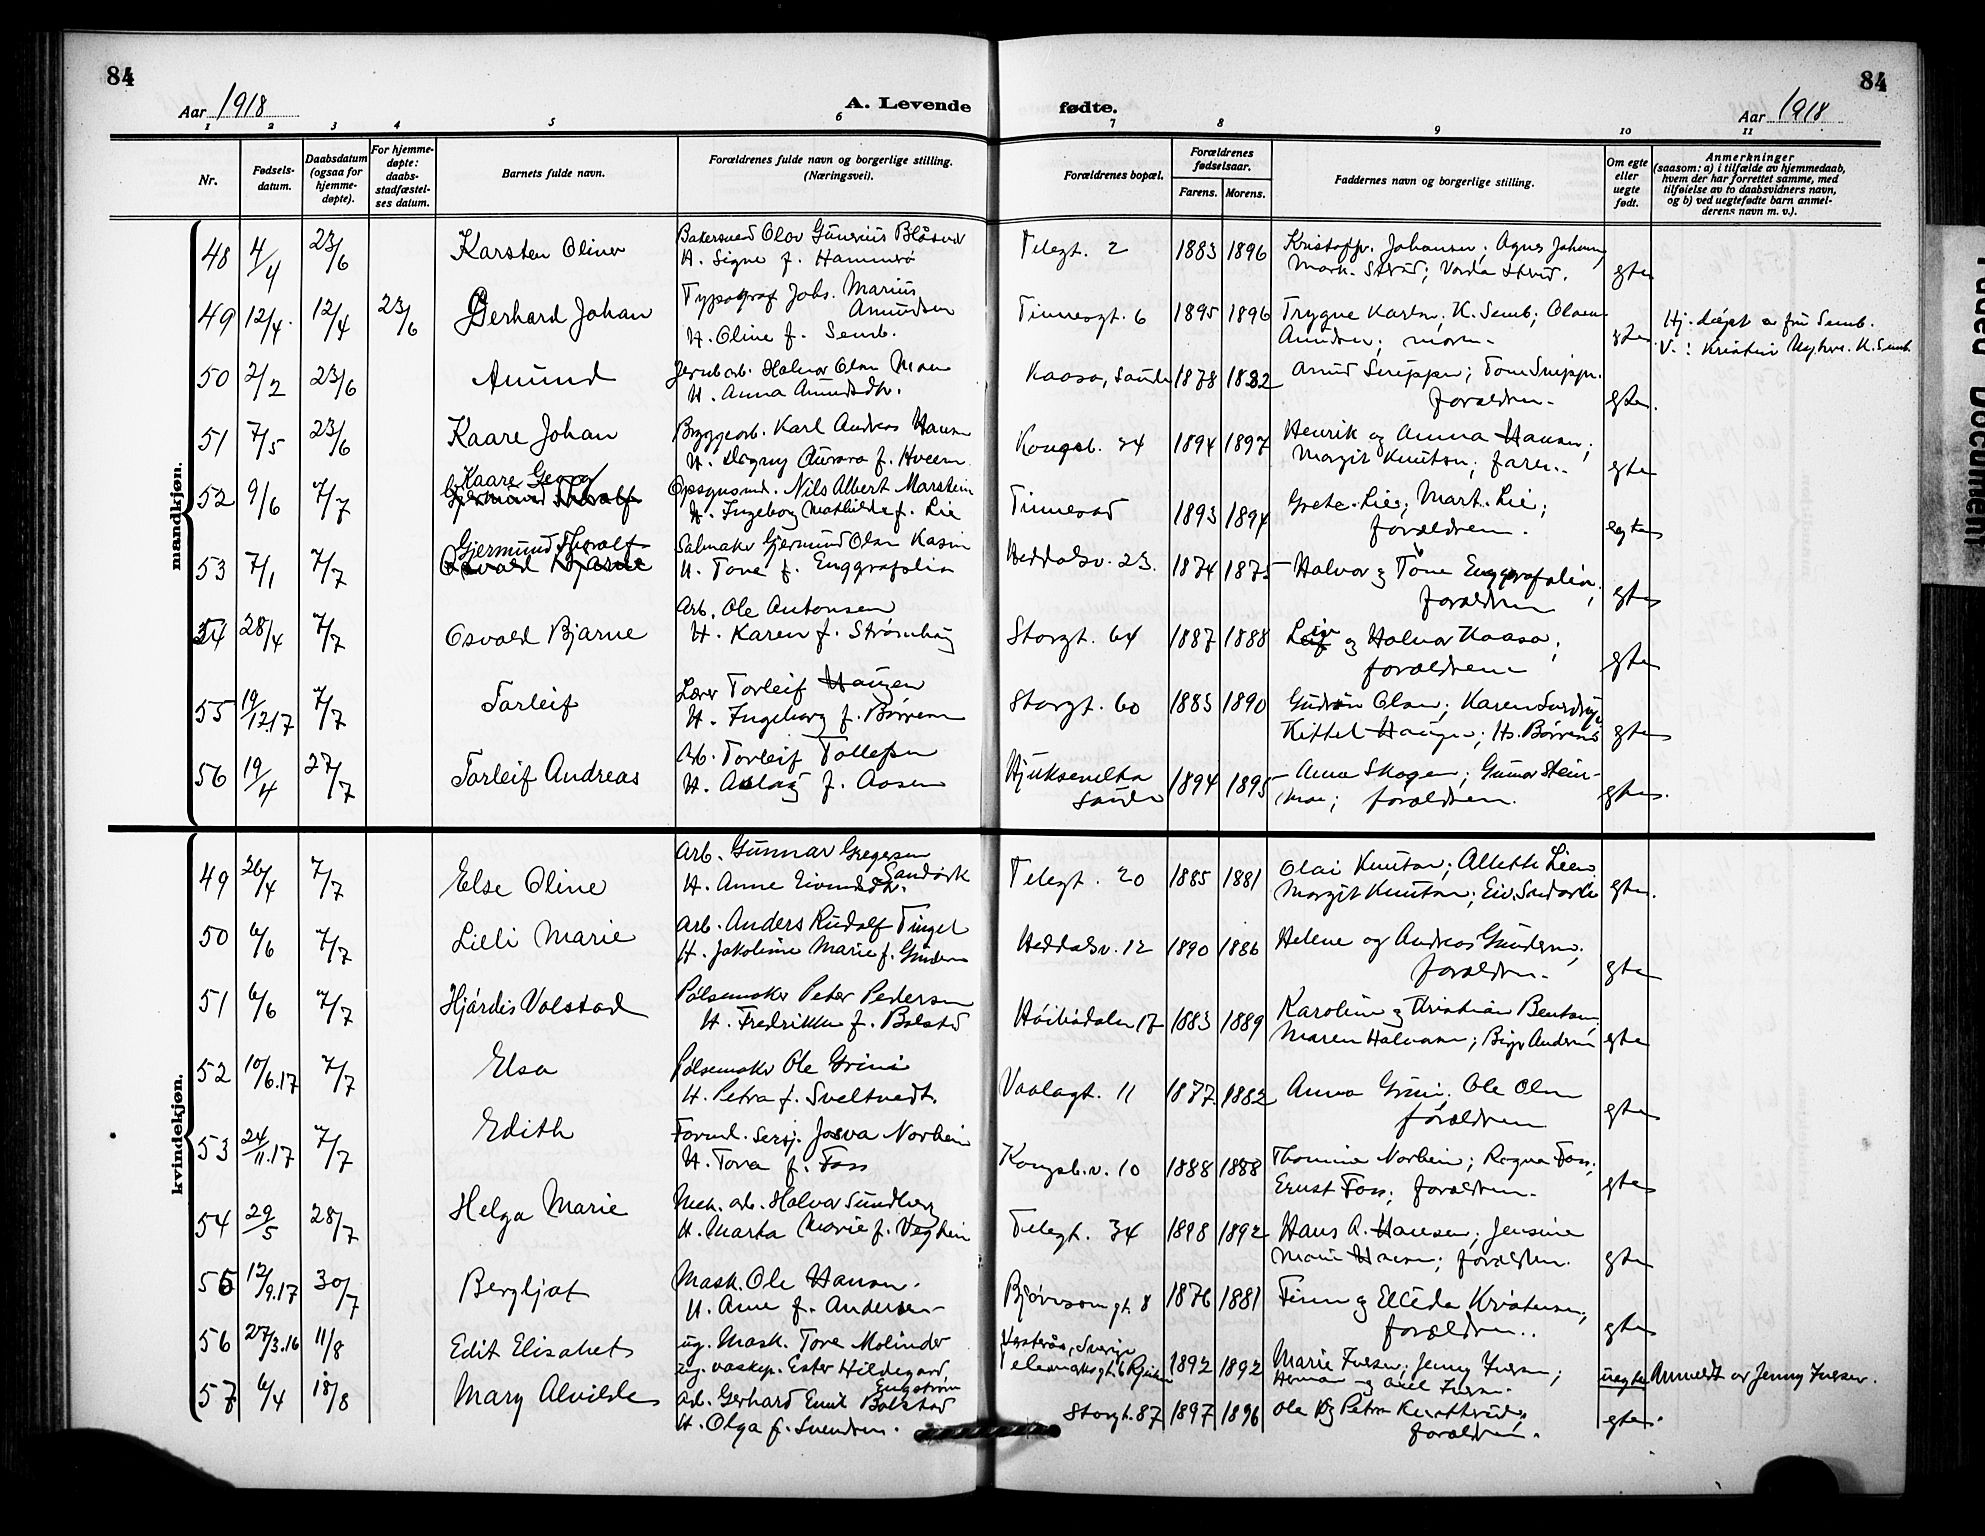 84
84
Aar 1918
A. Levende fødte.
Aar 1918
1 2 3 4 5 6 7 8 9 10 11
Nr.
Fødsels-
datum.
Daabsdatum
(ogsaa for
hjemme-
døpte).
For hjemme-
døpte:
daabs-
stadfæstel-
ses datum.
Barnets fulde navn.
Forældrenes fulde navn og borgerlige stilling.
(Næringsvei).
Forældrenes bopæl.
Forældrenes
fødselsaar.
Farens. Morens.
Faddernes navn og borgerlige stilling.
Om egte
eller
uegte
født.
Anmerkninger
(saasom: a) i tilfælde av hjemmedaab,
hvem der har forrettet samme, med
tilføielse av to daabsvidners navn,
og b) ved uegtefødte barn anmel-
derens navn m. v.).
mandkjøn.
48 4/4 23/6 Karsten Oliver
H. Signe f. Hammerø
Telegt. 2 1883 1896
Johansen; Agnes
egte
49 12/4 12/4 23/6 Gerhard Johan
Typograf Johs. Marius
Amundsen
H. Oline f. Semb.
Tinnesgt. 6 1895 1896 Trygve
egte
50 2/2 23/6 Amund
Jernarb. Halvor Olsen Moen
H. Anna Amundsdtr.
Kaasa, Saude 1878 1882
forældren.
egte.
51 7/5 23/6 Kaare Johan
Bryggearb. Karl Andreas Hansen
H. Dagny Aurora f. Hveem
Kongsb. 24 1894 1897 Henrik og Anna Hansen;
Margit Knutsen; faren.
egte
52 9/6 7/7 Kaare Georg
Gjermund Thoralf
Opsynsmd. Nils Albert Marstein
H. Ingeborg Mathilde f. Lie
Tinnesad 1893 1894 Grete Lie; Mart. Lie;
forældrene.
egte
53 7/1 7/7 Gjermund Thoralf
Osvald Bjarne
Salmaker Gjermund Olsen Kasin
H. Tone f. Enggrafslia
Heddalsv. 23. 1874 1875 Halvor og Tone Enggrafslia;
forældrene
egte
54 28/4 7/7 Osvald Bjarne
Arb. Ole Antonsen
H. Karen f. Strømhaug
Storgt. 64 1887 1888 og Halvor Kaasa;
forældrene
egte
55 19/12.17 7/7 Torleif
Lærer Torleif Haugen
H. Ingeborg f. Børresen
Storgt. 60 1883 1890 Gudrun Olsen; Karen
Kittel Haugen; Hs. Børresen
egte
56 19/4 27/7 Torleif Andreas
Arb. Torleif Tollefsen
H. Aslaug f. Aasen
Hjuksevelta
Saude 1894 1895 Anna Skogen; Gunnar Stein-
moe; forældrene.
egte.
kvindekjøn.
49 26/4 7/7 Else Oline
Arb. Gunnar Gregersen
Sandøek
H. Anne Eivindsdtr.
Telegt. 20 1885 1881 Olai Knutsen; Alette Lien
Margit Knutsen;
egte.
50 6/6 7/7 Lilli Marie
Arb. Anders Rudolf Tingel
H. Jakobine Marie f. Gundersen
Heddalsv. 12 1890 1886 Helene og Andreas Gundersen;
forældren.
egte
51 6/6 7/7 Hjørdis Volstad
Pølsemaker Peter Pedersen
H. Fredrikke f. Bolstad
Høibødalen 17 1883 1889 Karoline og Kristian Bentsen
Maren Halvorsen; Birger Andersen
egte
52 10/6.17 7/7 Elsa
Pølsemaker Ole Grini
H. Petra f. Sveltvedt.
Vaalagt. 11 1877 1882 Anna Grini; Ole Olsen
forældrene
egte
53 24/11.17 7/7 Edith
Forvd. Sersj. Josva Norheim
H. Tora f. Foss
Kongsb.v. 10 1888 1888 Thomine Norheim; Ragna Foss;
Ernst Foss; forældrene.
egte
54 29/5 28/7 Helga Marie
Mek. arb. Halvor Sundberg
H. Marta Marie f. Vegheim
Telegt. 34 1898 1892 Hans A. Hansen; Jensine
Marie Hansen; forældren.
egte
55 12/9.17 30/7 Bergljot
Mask. Ole Hansen.
H. Anne f. Andersen
Bjørnsons gt. 8 1876 1881 Finn og Elida Kristensen;
forældren.
egte
56 27/3.16 11/8 Edit Elisabet
ug. Mask. Tore Molinder
ug. vaskep. Ester Hildegard
Engstrøm
Vesterås, Sverige
Telemarksgt. 6 Rjukan 1892 1892 Marie Iversen; Jenny Iversen;
Herman og Iversen.
uegte Anmeldt av Jenny Iversen.
57 6/4 18/8 Mary Alvilde
Arb. Gerhard Emil Bolstad
H. Olga f. Svendsen.
Storgt. 87 1897 1896 Ole og Petra
forældren.
egte.